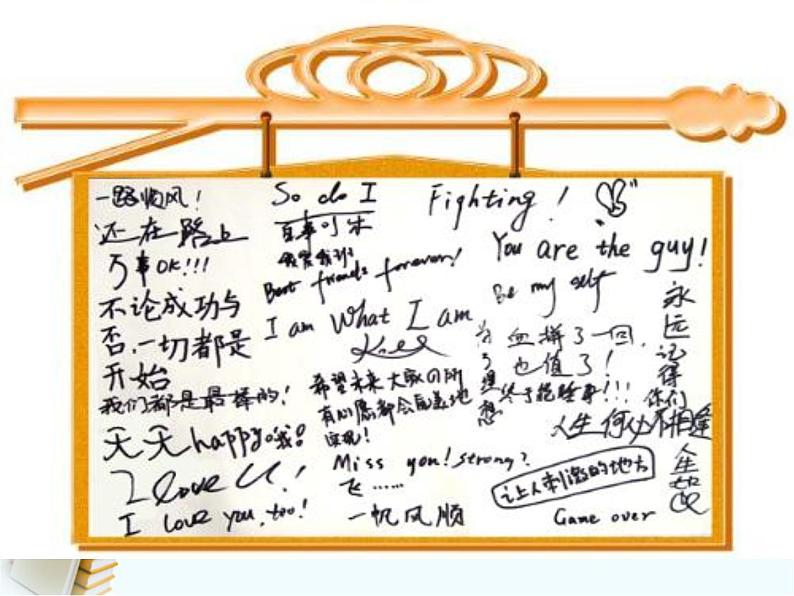 一路顺风！
还在路上
万事OK!!!
不论成功与
否,一切都是
开始
我们都是最棒的！
天天happy哦！
I love U!
I love you, too!
So do I
百事可乐
Best friends forever!
I am What I am
希望未来大家的所
有心愿都会自美地
实现！
Miss you! strong?
飞……
一帆风顺
Fighting!
You are the guy!
Be my self
为了理想
血拼了一回,
也值了！
永远记得你们
人生何处不相逢
让人刺激的地方
Game over
人生如